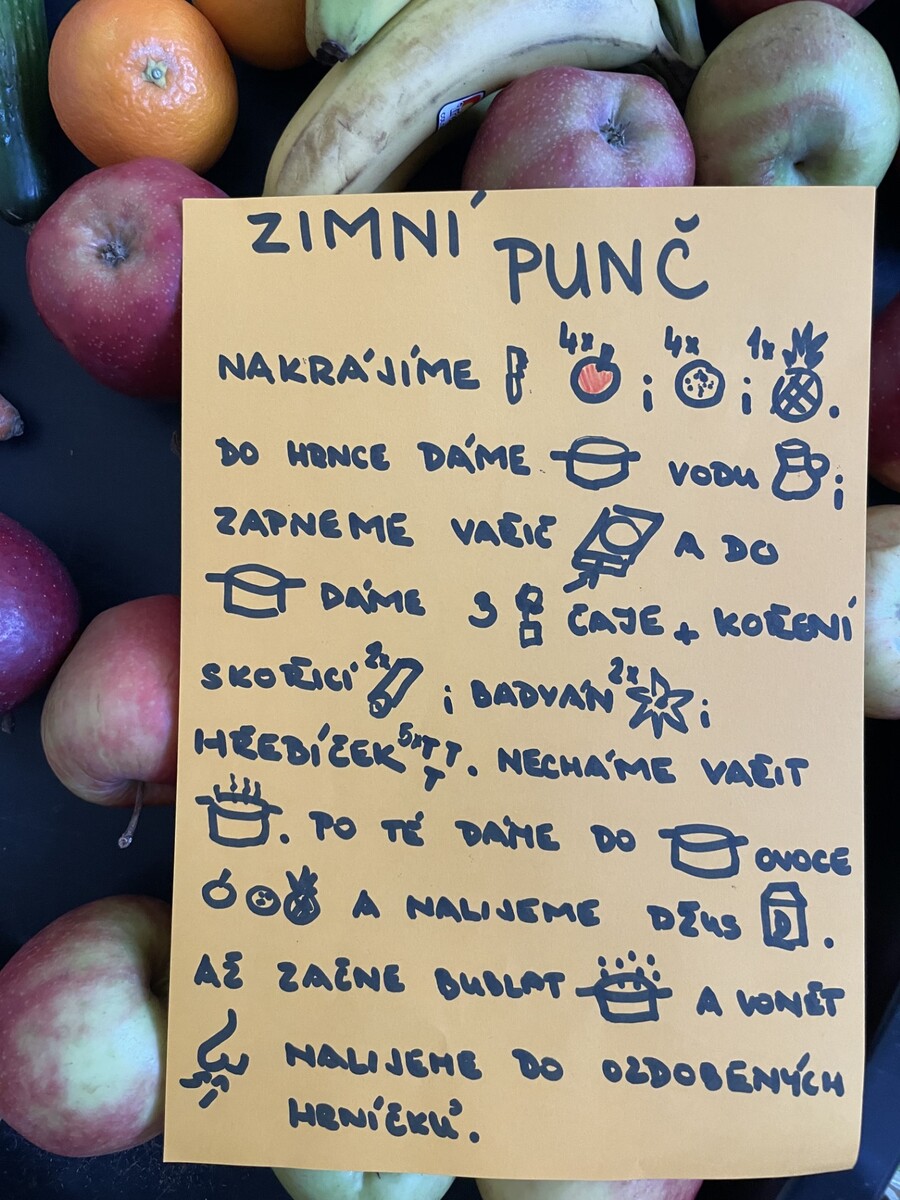 ZIMNÍ PUNČ
NAKRÁJÍME 4x ; 4x ; 1x .
DO HRNCE DÁME VODU ;
ZAPNEME VAŘIČ A DO
DÁME 3 ČAJE + KOŘENÍ
SKOŘICÍ 2x ; BADYÁN 2x ;
HŘEBÍČEK 5x . NECHÁME VAŘIT
. PO TÉ DÁME DO OVOCE
A NALIJEME DŽUS D .
AŽ ZAČNE BUBLAT A VONĚT
NALIJEME DO OZDOBENÝCH
HRNÍČKŮ.